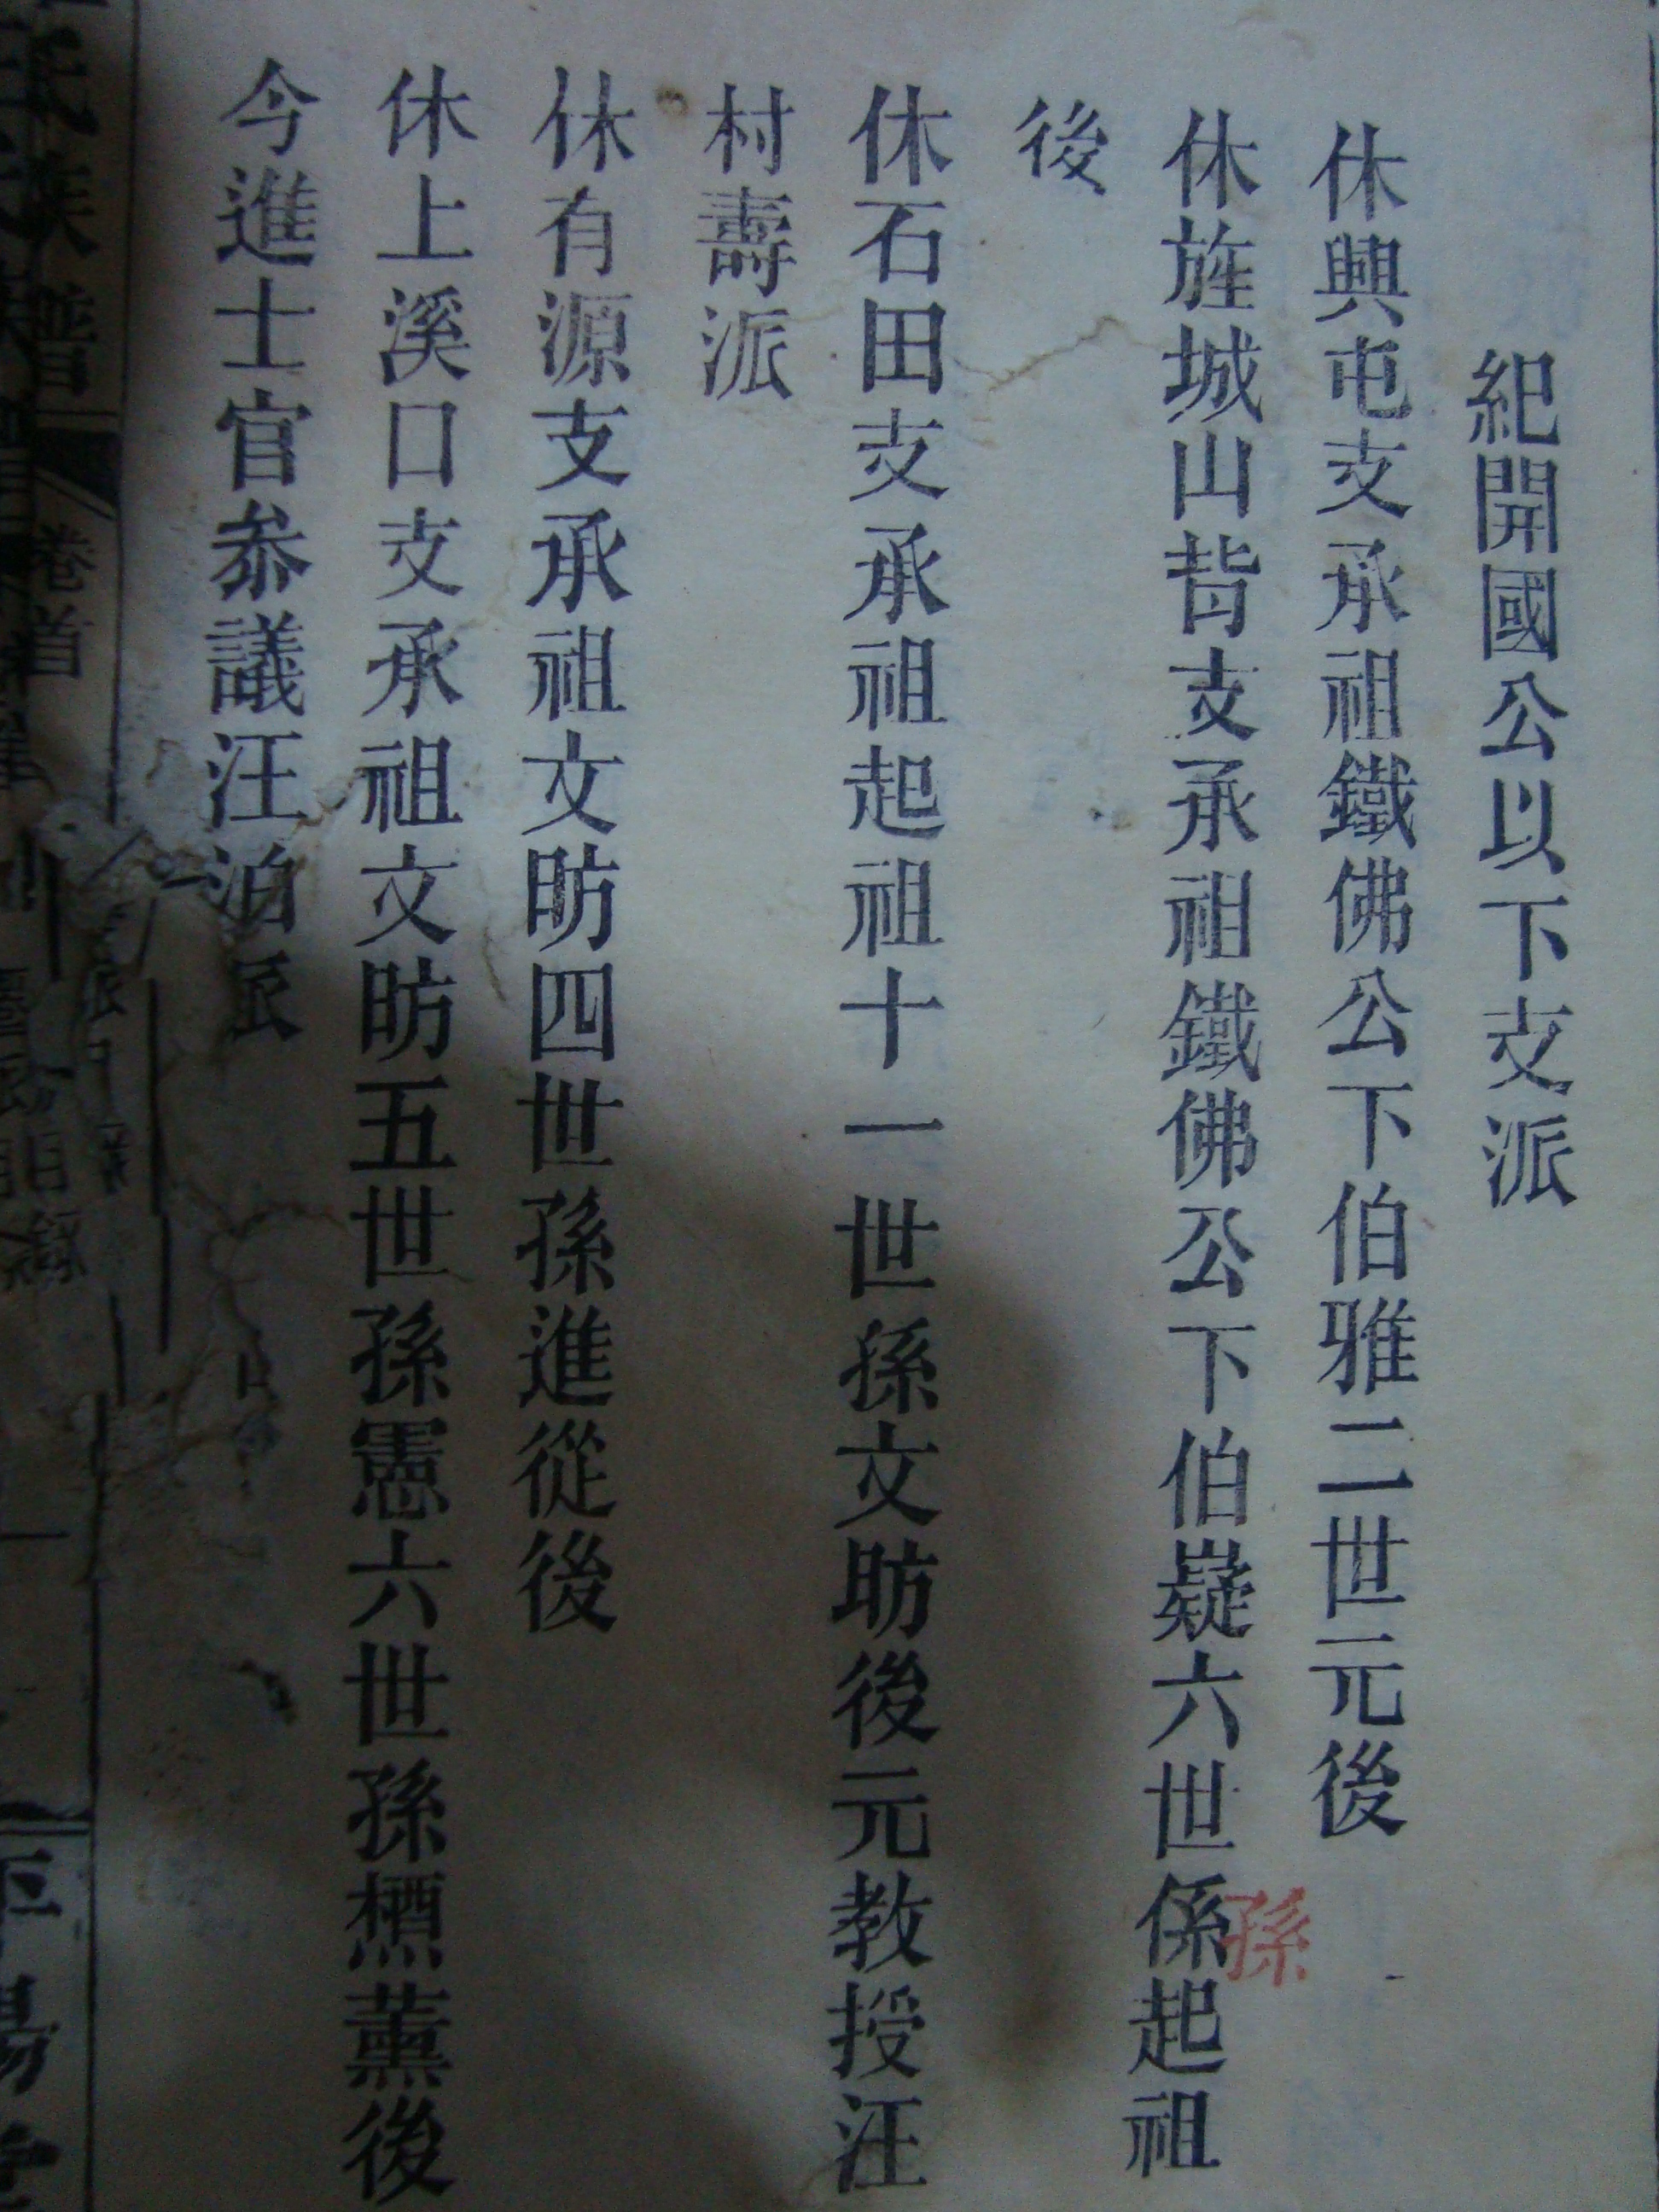 紀開國公以下支派
休興屯支承祖鐵佛公下伯雅二世元後
休旌城山背支承祖鐵佛公下伯嶷六世係起祖
孫
後
休石田支承祖起祖十一世孫文昉後元教授汪
村壽派
休有源支承祖文昉四世孫進從後
休上溪口支承祖文昉五世孫憲六世孫槱薰後
今進士官叅議汪泊
卷首